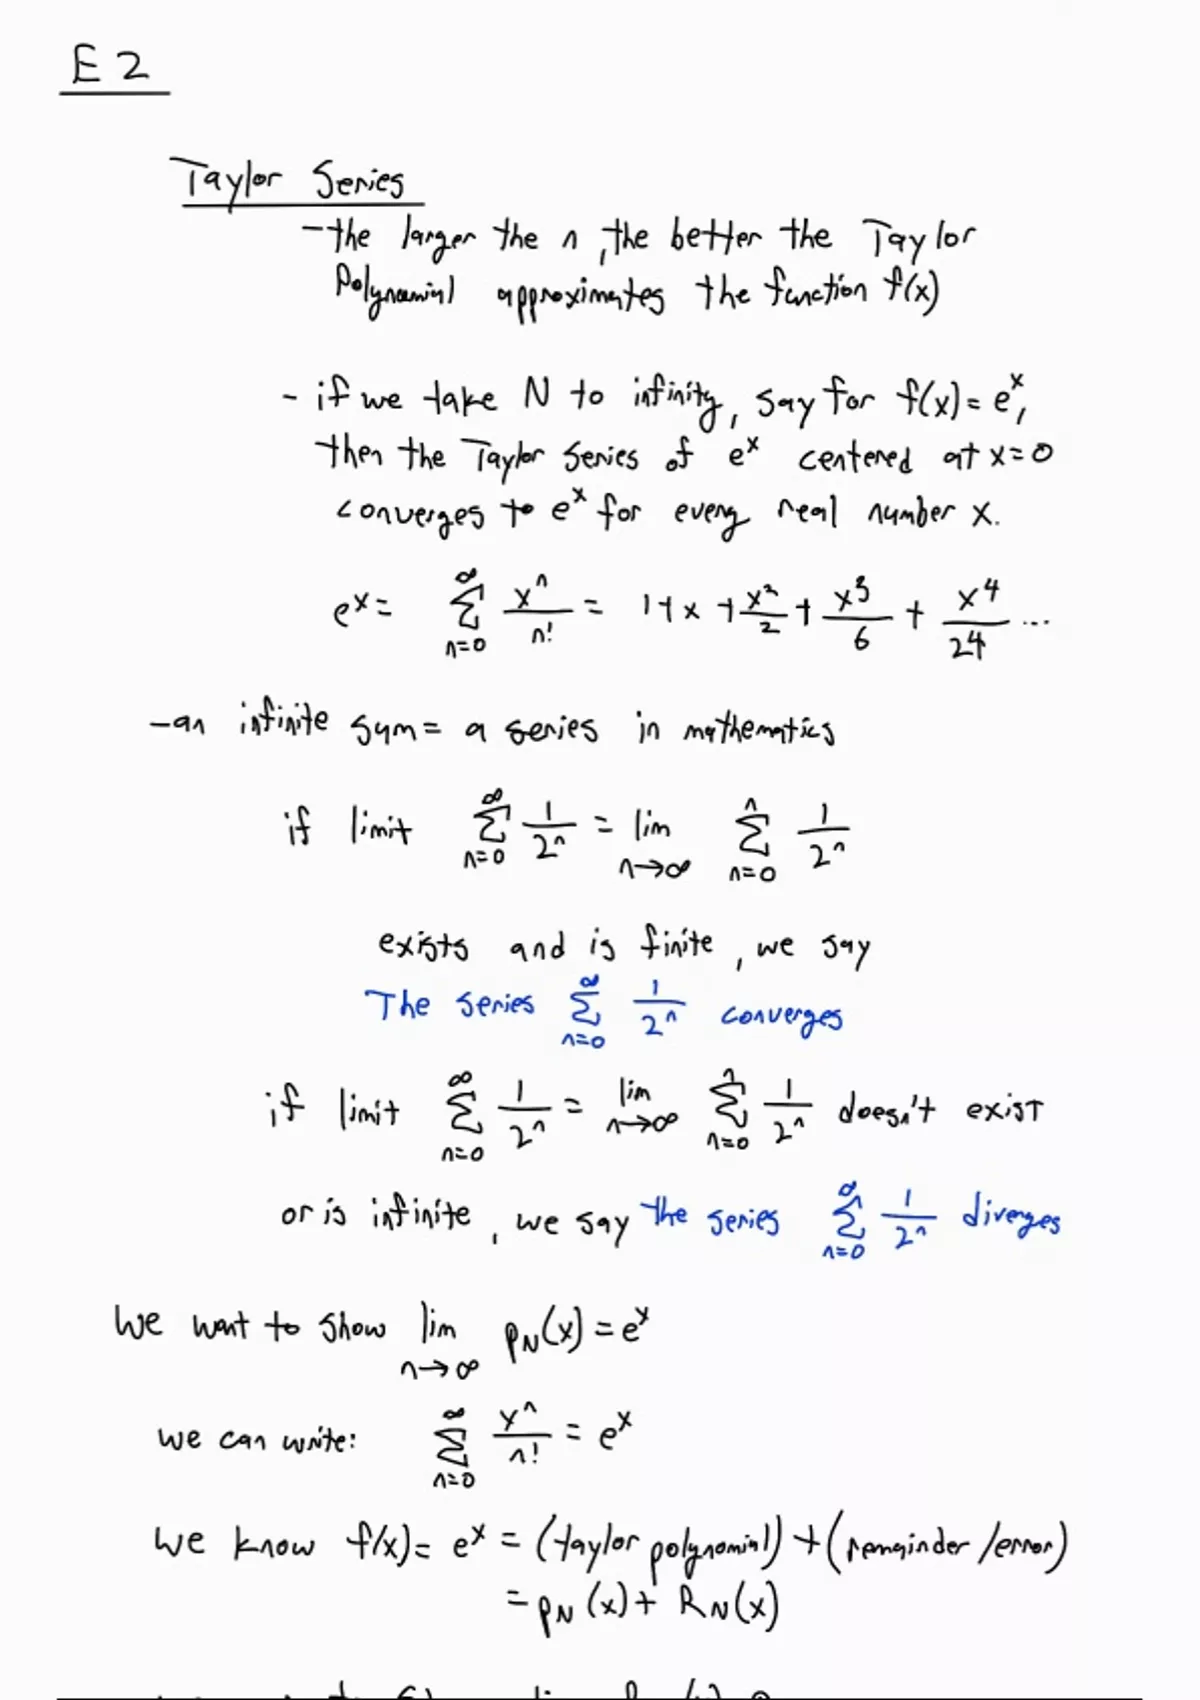 E2
Taylor Series
- the larger the n, the better the Taylor
Polynomial approximates the function f(x)
- if we take N to infinity, say for f(x) = eˣ,
then the Taylor Series of eˣ centered at x=0
converges to eˣ for every real number x.
eˣ = ∑_{n=0}^{∞} xⁿ/n! = 1+x+x²/2+x³/6+x⁴/24...
- an infinite sum = a series in mathematics
if limit ∑_{n=0}^{∞} 1/2ⁿ = lim_{n→∞} ∑_{n=0}^{n} 1/2ⁿ
exists and is finite, we say
The series ∑_{n=0}^{∞} 1/2ⁿ converges
if limit ∑_{n=0}^{∞} 1/2ⁿ = lim_{n→∞} ∑_{n=0}^{n} 1/2ⁿ doesn't exist
or is infinite, we say the series ∑_{n=0}^{∞} 1/2ⁿ diverges
We want to show lim_{n→∞} p_N(x) = eˣ
we can write: ∑_{n=0}^{∞} xⁿ/n! = eˣ
we know f(x) = eˣ = (taylor polynomial) + (remainder/error)
= p_N(x) + R_N(x)